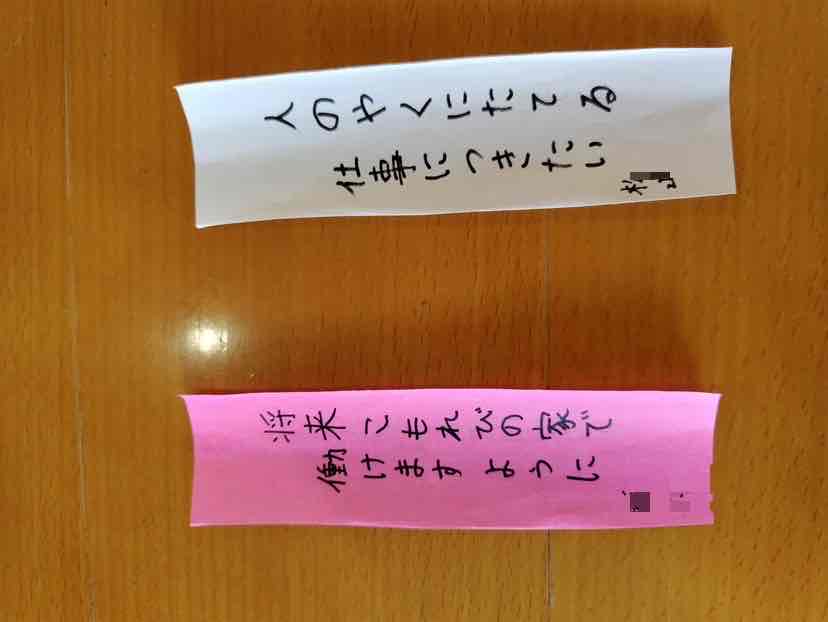 人のやくにたてる
仕事につきたい
将来こもれびの家で
働けますように